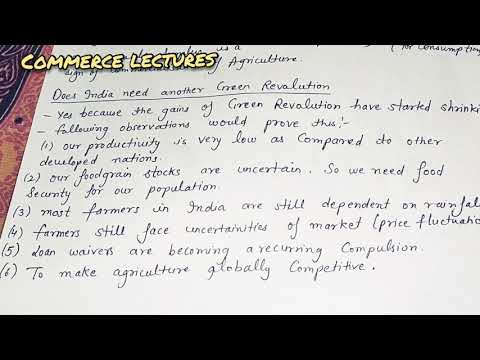 COMMERCE LECTURES
is a
(for consumption
sign of Agriculture.
Does India need another Green Revalution
- Yes because the gains of Green Revalution have started shrinki
- Following observations would prove this:-
(1) our productivity is very low as Compared to other
developed nations.
(2) our foodgrain stocks are uncertain. So we need food
Security for our population.
(3) most farmers in India are still dependent on rainfal
(4) farmers still face uncertainities of market (price fluctuatio
(5) Loan waivers are becoming a recurring Compulsion.
(6) To make agriculture globally Competitive.